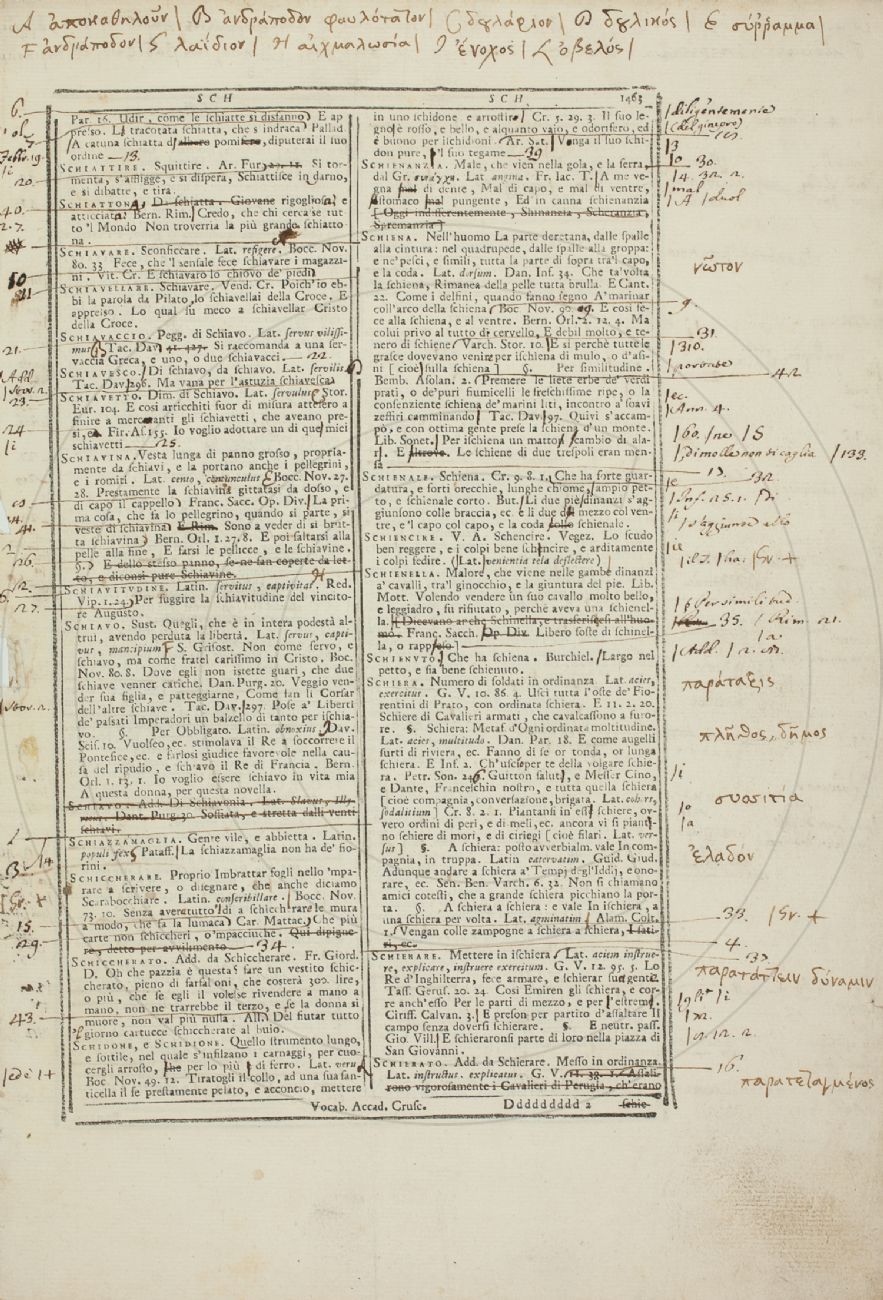 A ἀποκαθηλοῦν | B ἀνδράποδον φαυλότατον | C δουλάριον | D δουλικός | E σύῤῥαμμα |
F ἀνδράποδον | G λαίδιον | H αἰχμαλωσία | I ἔνοχος | L ὀβελός |
SCH
Par. 16. Udir, come le schiatte si disfanno. E ap
presso. La tracotata schiatta, che s'indraca. Pallad.
A catuna schiatta d'albero pomifero, diputerai il suo
ordine 13.
SCHIATTIRE. Squittire. Ar. Fur. 27. 15. Si tor-
menta, s'affligge, e si dispera, Schiattisce in darno,
e si dibatte, e tira.
SCHIATTONA, Di schiatta. Giovane rigogliosa, e
atticciata. Bern. Rim. Credo, che chi cercasse tut
to 'l Mondo Non troverria la più grande schiatto
na.
SCHIAVARE. Sconficcare. Lat. refigere. Bocc. Nov.
80. 33 Fece, che 'l sensale fece schiavare i magazzi-
ni. Vit. Cr. E schiavaro lo chiovo de' piedi
SCHIAVELLARE. Schiavare. Vend. Cr. Poich'io eb-
bi la parola da Pilato, lo schiavellai della Croce. E
appresso. Lo qual fu meco a schiavellar Cristo
della Croce.
SCHIAVACCIO. Pegg. di Schiavo. Lat. servus vilissi-
mus. Tac. Dav. 41. 427. Si raccomanda a una ser-
vaccia Greca, e uno, o due schiavacci. 22.
SCHIAVESCO. Di schiavo, da schiavo. Lat. servilis.
Tac. Dav. 296. Ma vana per l'astuzia schiavesca.
SCHIAVETTO. Dim. di Schiavo. Lat. servulus. Stor.
Eur. 104. E così articchiti fuor di misura attesero a
finire a mercatanti gli schiavetti, che aveano pre-
si, ec. Fir. As. 155. Io voglio adottare un di que' miei
schiavetti 25.
SCHIAVINA. Vesta lunga di panno grosso, propria-
mente da schiavi, e la portano anche i pellegrini,
e i romiti. Lat. cento, centunculus. Bocc. Nov. 27.
28. Prestamente la schiavina gittatasi da dosso, e
di capo il cappello. Franc. Sacc. Op. Div. La pri-
ma cosa, che fa lo pellegrino, quando si parte, si
veste di schiavina. E Rim. Sono a veder di sì brut-
ta schiavina. Bern. Orl. 1. 27. 8. E poi saltarsi alla
pelle alla fine, E farsi le pellicce, e le schiavine.
§. E dello stesso panno, se ne fan coperte da let-
to, e diconsi pure Schiavine.
SCHIAVITUDINE. Latin. servitus, captivitas. Red.
Vip. 1. 24. Per fuggire la schiavitudine del vincito-
re Augusto.
SCHIAVO. Sust. Quegli, che è in intera podestà al-
trui, avendo perduta la libertà. Lat. servus, capti-
vus, mancipium. S. Grisost. Non come servo, e
schiavo, ma come fratel carissimo in Cristo. Boc.
Nov. 80. 8. Dove egli non istette guari, che due
schiave venner cariche. Dan. Purg. 20. Veggio ven-
der sua figlia, e patteggiarne, Come fan li Corsar
dell'altre schiave. Tac. Dav. 297. Pose a' Liberti
de' passati Imperadori un balzello di tanto per ischia-
vo. §. Per Obbligato. Latin. obnoxius. Dav.
Scis. 10. Vuolseo, ec. stimolava il Re a soccorrere il
Pontefice, ec. e farlosi giudice favorevole nella cau-
sa del ripudio, e schiavo il Re di Francia. Bern.
Orl. 1. 13. 1. Io voglio essere schiavo in vita mia
A questa donna, per questa novella.
SCHIAVO. Add. Di Schiavonia. Lat. Slavus, Illy-
rius. Dant. Purg. 30. Soffiata, e stretta dalli venti
schiavi.
SCHIAZZAMAGLIA. Gente vile, e abbietta. Latin.
populi fex. Pataff. La schiazzamaglia non ha de' fio-
rini.
SCHICCHERARE. Proprio Imbrattar fogli nello 'mpa-
rare a scrivere, o disegnare, che anche diciamo
Scarabocchiare. Latin. conscribillare. Bocc. Nov.
73. 10. Senza avere tutto 'l dì a schiccherare le mura
a modo, che fa la lumaca. Car. Mattac. Che più
carte non schiccheri, o 'mpacciuche. Qui dipigne-
re, detto per avvilimento 34.
SCHICCHERATO. Add. da Schiccherare. Fr. Giord.
D. Oh che pazzia è questa! fare un vestito schic-
cherato, pieno di farfalloni, che costerà 300. lire,
o più, che se egli il volesse rivendere a mano a
mano, non ne trarrebbe il terzo, e se la donna si
muore, non val più nulla. All. Del fiutar tutto
'l giorno cartucce schiccherate al buio.
SCHIDONE, e SCHIDIONE. Quello strumento lungo,
e sottile, nel quale s'infilzano i carnaggi, per cuo-
cergli arrosto, che per lo più è di ferro. Lat. veru.
Boc. Nov. 49. 12. Tiratogli il collo, ad una sua fan-
ticella il fe prestamente pelato, e acconcio, mettere
SCH 1463
in uno schidone e arrostire. Cr. 5. 29. 3. Il suo le-
gno è rosso, e bello, e alquanto vaio, e odorifero, ed
è buono per ischidioni. Ar. Sat. Venga il suo schi-
don pure, e 'l suo tegame 39
SCHIENANZIA. Male, che vien nella gola, e la serra,
dal Gr. συνάγχη. Lat. angina. Fr. Iac. T. A me ve-
gna mal di dente, Mal di capo, e mal di ventre,
Stomaco mal pungente, Ed in canna schienanzia
Oggi indifferentemente, Shinanzia, Scheranzia,
Spremanzia.
SCHIENA. Nell'huomo La parte deretana, dalle spalle
alla cintura: nel quadrupede, dalle spalle alla groppa:
e ne' pesci, e simili, tutta la parte di sopra tra 'l capo,
e la coda. Lat. dorsum. Dan. Inf. 34. Che ta' volta
la schiena, Rimanea della pelle tutta brulla. E Cant.
22. Come i delfini, quando fanno segno A' marinar
coll'arco della schiena. Boc Nov. 90. E così fe-
ce alla schiena, e al ventre. Bern. Orl. 2. 12. 4. Ma
colui privo al tutto di cervello, E debil molto, e te-
nero di schiene. Varch. Stor. 10. E sì perchè tutte le
grasce dovevano venire per ischiena di mulo, o d'asi-
ni [cioè sulla schiena] §. Per similitudine.
Bemb. Asolan. 2. Premere le liete erbe de' verdi
prati, o de' puri fiumicelli le freschissime ripe, o la
consenziente schiena de' marini liti, incontro a' soavi
zeffiri camminando. Tac. Dav. 97. Quivi s'accam-
pò, e con ottima gente prese la schiena d'un monte.
Lib. Sonet. Per ischiena un matton scambio di ala-
r. E altrove. Le schiene di due trespoli eran men-
sa
SCHIENALE. Schiena. Cr. 9. 8. 1. Che ha forte guar-
datura, e forti orecchie, lunghe chiome, ampio pet-
to, e schienale corto. But. Li due piedi dinanzi s'ag-
giunsono colle braccia, ec. e li due di mezzo col ven-
tre, e 'l capo col capo, e la coda collo schienale.
SCHIENCIRE. V. A. Schencire. Vegez. Lo scudo
ben reggere, e i colpi bene schencire, e arditamente
i colpi fedire. (Lat. venientia tela deflectere)
SCHIENELLA. Malore, che viene nelle gambe dinanzi
a' cavalli, tra 'l ginocchio, e la giuntura del pie. Lib.
Mott. Volendo vendere un suo cavallo molto bello,
e leggiadro, fu rifiutato, perchè aveva una schienel-
la. Dicevano anche Schinella, e trasferiscesi all'huo-
mo. Franc. Sacch. Op. Div. Libero fosse di schinel-
la, o rappe
SCHIENUTO. Che ha schiena. Burchiel. Largo nel
petto, e sia bene schienuto.
SCHIERA. Numero di soldati in ordinanza. Lat. acies,
exercitus. G. V. 10. 86. 4. Uscì tutta l'oste de' Fio-
rentini di Prato, con ordinata schiera. E 11. 2. 20.
Schiere di Cavalieri armati, che cavalcassono a furo-
re. §. Schiera: Metaf. d'Ogni ordinata moltitudine.
Lat. acies, multitudo. Dan. Par. 18. E come augelli
surti di riviera, ec. Fanno di se or tonda, or lunga
schiera. E Inf. 2. Ch'uscio per te della volgare schie-
ra. Petr. Son. 246. Guitton saluti, e Messer Cino,
e Dante, Franceschin nostro, e tutta quella schiera
[cioè compagnia, conversazione, brigata. Lat. cohors,
sodalitium] Cr. 8. 2. 1. Piantansi in esse schiere, ov-
vero ordini di peri, e di meli, ec. ancora vi si pianti-
no schiere di mori, e di ciriegi [cioè filari. Lat. ver-
sus] §. A schiera: posto avverbialm. vale In com-
pagnia, in truppa. Latin catervatim. Guid. Giud.
Adunque andare a schiera a' Tempj degl'Iddj, e ono-
rare, ec. Sen. Ben. Varch. 6. 32. Non si chiamano
amici cotesti, che a grande schiera picchiano la por-
ta. §. A schiera a schiera: e vale In ischiera, a
una schiera per volta. Lat. agminatim. Alam. Colt.
1. Vengan colle zampogne a schiera a schiera, I sati-
ri, ec.
SCHIERARE. Mettere in ischiera. Lat. aciem instrue-
re, explicare, instruere exercitum. G. V. 12. 95. 5. Lo
Re d'Inghilterra, fece armare, e schierar sue gente.
Tass. Gerus. 20. 24. Così Emiren gli schiera, e cor-
re anch'esso Per le parti di mezzo, e per l'estreme.
Ciriff. Calvan. 3. E preson per partito d'assaltare Il
campo senza doversi schierare. §. E neutr. pass.
Gio. Vill. E schieraronsi parte di loro nella piazza di
San Giovanni.
SCHIERATO. Add. da Schierare. Messo in ordinanza.
Lat. instructus, explicatus. G. V. 11. 39. 1. Assali-
rono vigorosamente i Cavalieri di Perugia, ch'erano
Vocab. Accad. Crusc. Ddddddddd 2 schie-
diligentemente
(del ginepro)
νῶτον
9.
31.
1310.
42
Ann. 4.
dimolla non ti caglia / 133.
Inf. 25. 1.
s'aggiunser allo
Per similitud.
35. / Rim. 21.
παράταξις
πλῆθος, δῆμος
συσσιτία
ἐλαδόν
33.
4.
παρατάττειν δύναμιν
16.
παρατεταγμένος